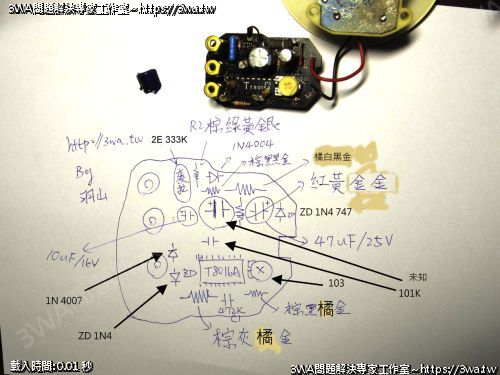 3WA問題解決專家工作室~https://3wa.tw
3WA問題解決專家工作室~https://3wa.tw
T8016A
R2棕綠黃銀
http://3wa.tw
2E 333K
1N4004
橘白黑金
棕黑黑金
By
羽山
紅黃金金
ZD 1N4 747
10uF/16V
47uF/25V
ZD
T8016A
未知
1N 4007
103
101K
472K
棕黑橘金
ZD 1N4
棕灰橘金
載入時間:0.01 秒
3WA問題解決專家工作室~https://3wa.tw